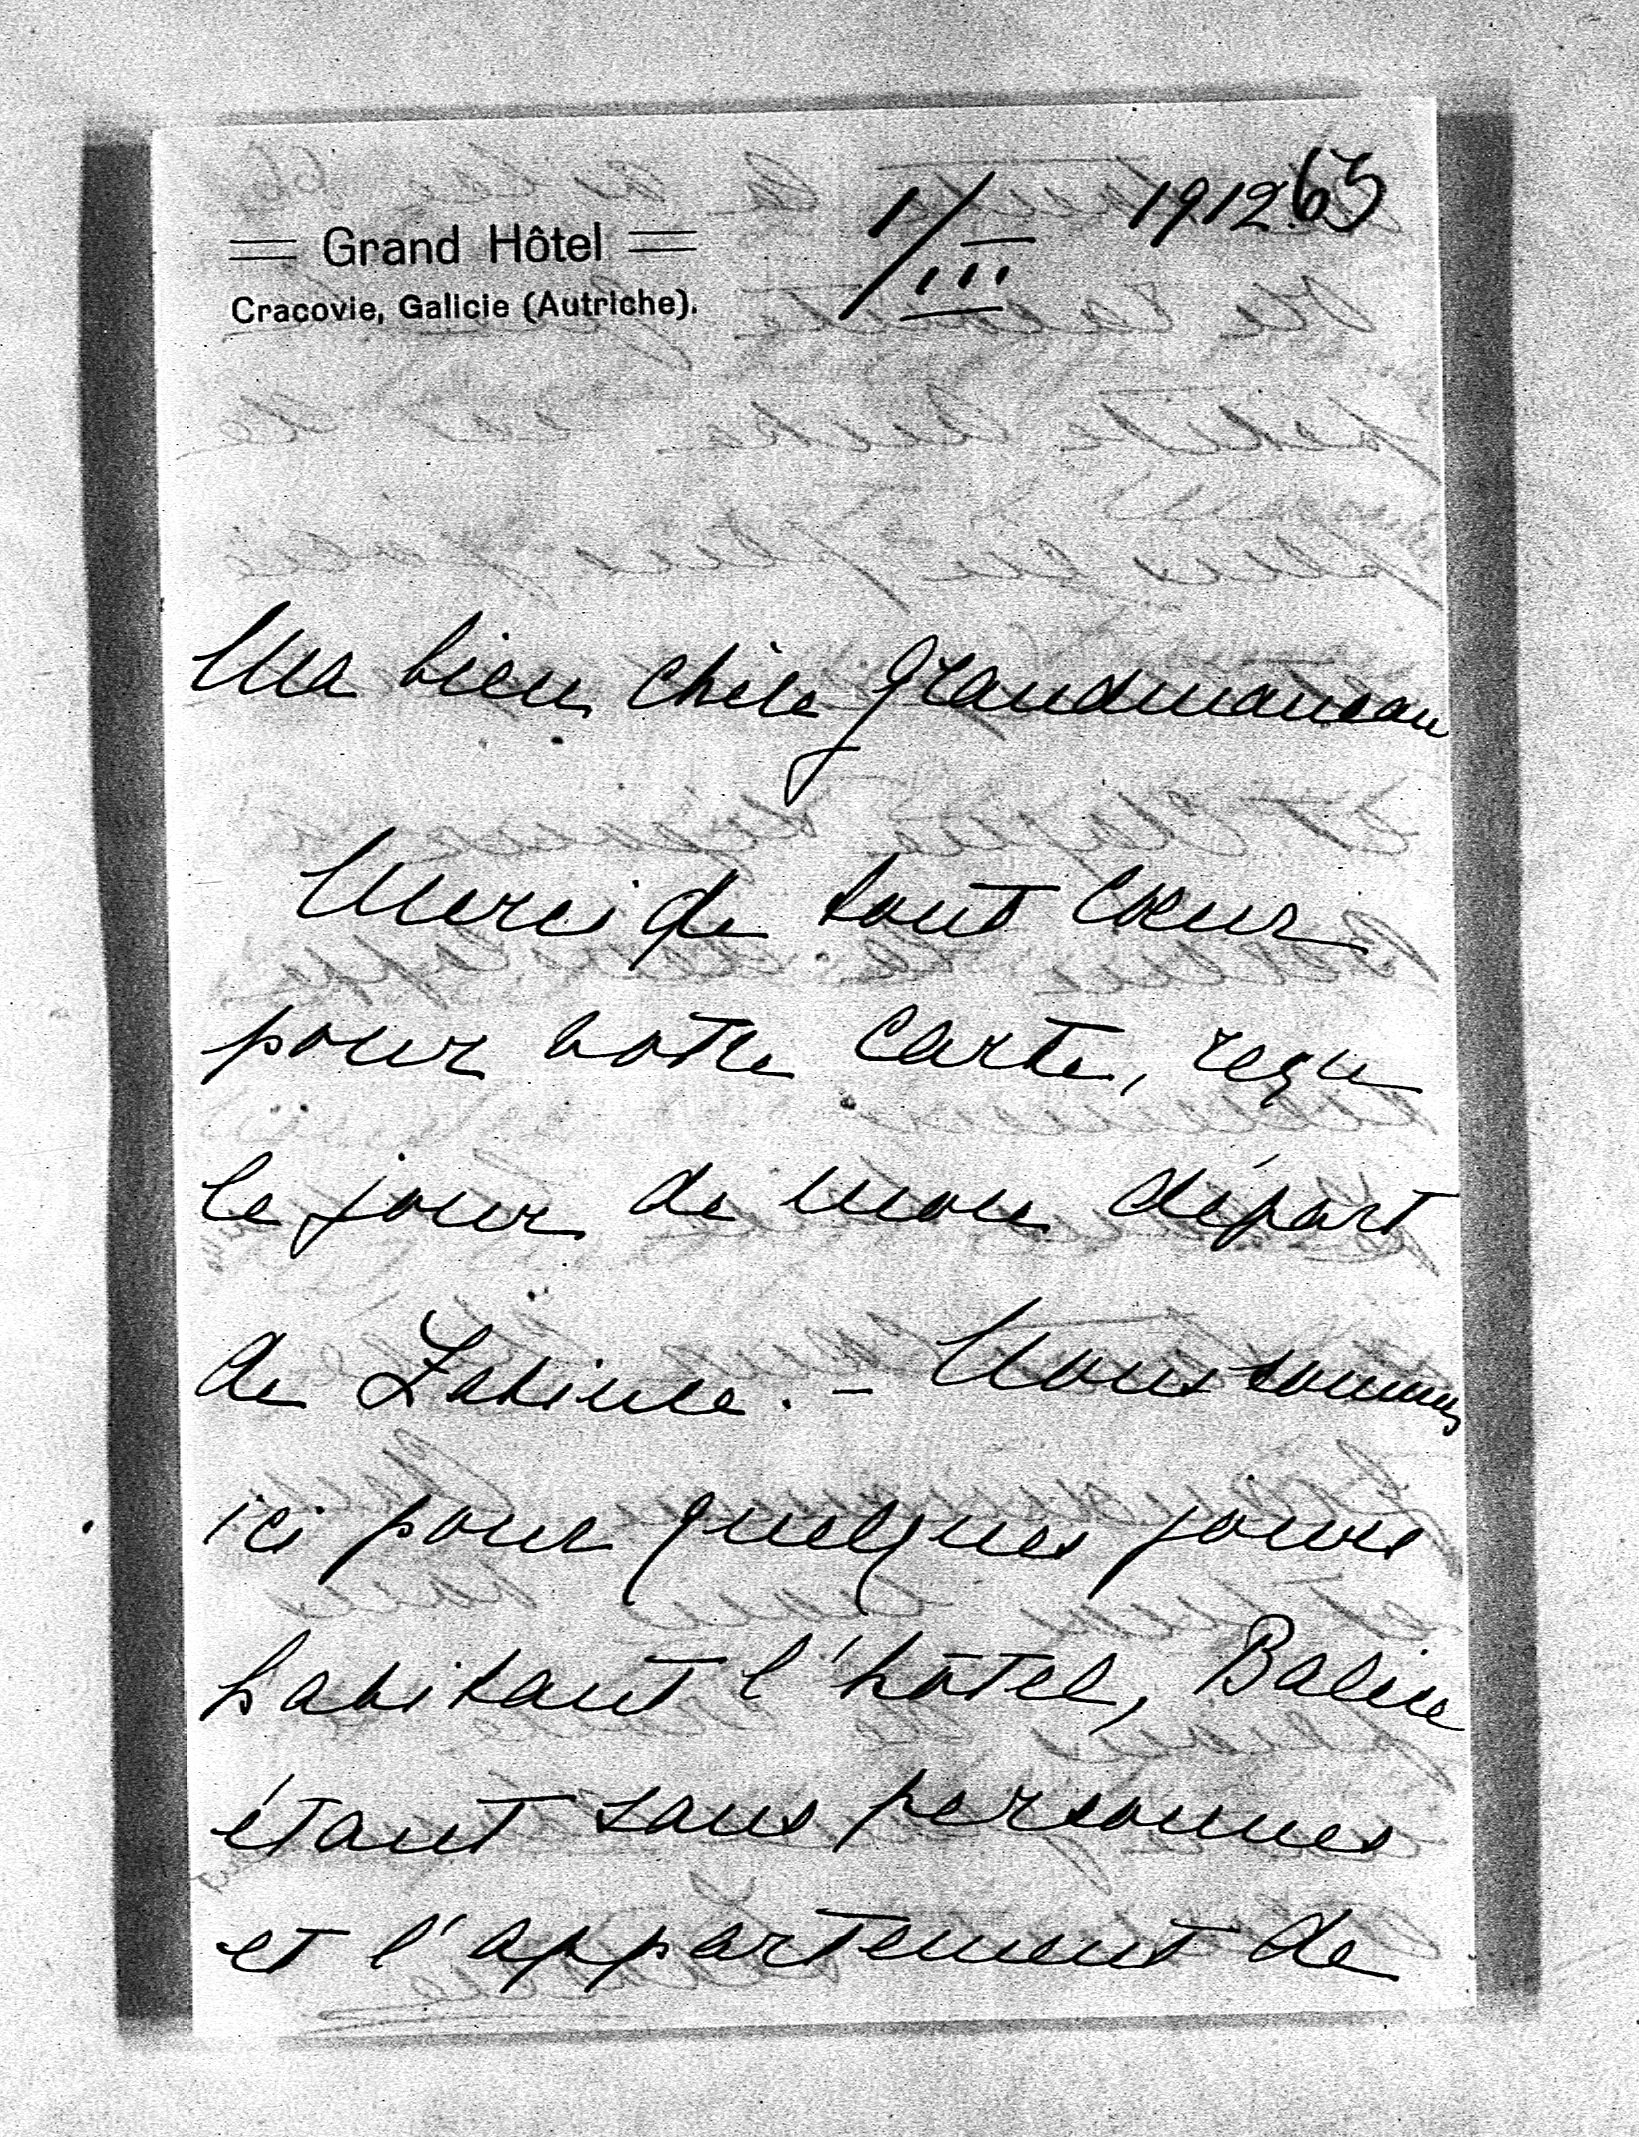 Grand Hôtel
Cracovie, Galicie (Autriche).
1/III 1912. 65
Ma bien chère Grandmaman
Merci de tout cœur
pour votre carte, reçu
le jour de mon départ
de
. – Nous sommes
ici pour quelques jours
habitant l'hôtel, Balice
étant sans personnes
et l'appartement de